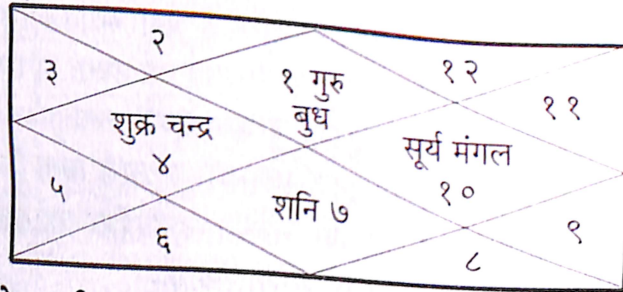 २
३
१ गुरु
बुध
१२
११
शुक्र चन्द्र
४
सूर्य मंगल
१०
५
शनि ७
६
९
८